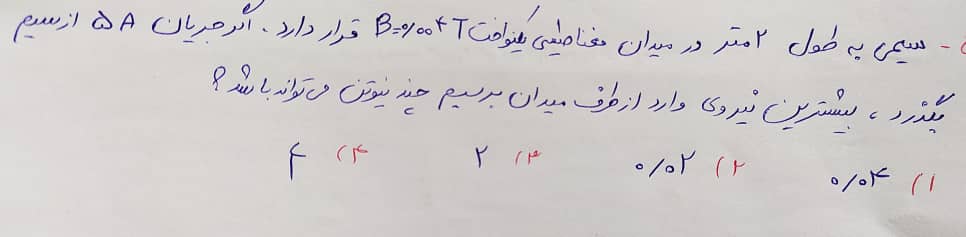 - سیمی به طول ۲ متر در میدان مغناطیسی یکنواخت B=۰/۰۰۴ T قرار دارد. اگر جریان ۵ A از سیم
بگذرد، بیشترین نیروی وارد از طرف میدان بر سیم چند نیوتن می تواند باشد؟
۱) ۰/۰۴ ۲) ۰/۰۲ ۳) ۲ ۴) ۴